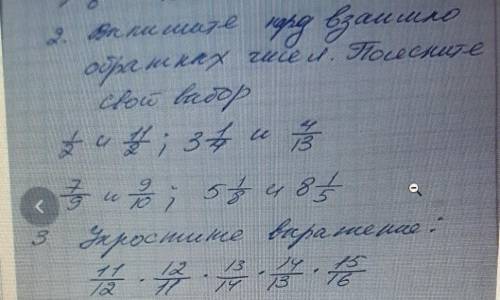 2. Выпишите пару взаимно
обратных чисел. Поясните
свой выбор
1/2 и 11/2 ; 3 1/4 и 4/13
7/9 и 9/10 ; 5 1/8 и 8 1/5
3 Упростите выражение:
11/12 · 12/11 · 13/14 · 14/13 · 15/16